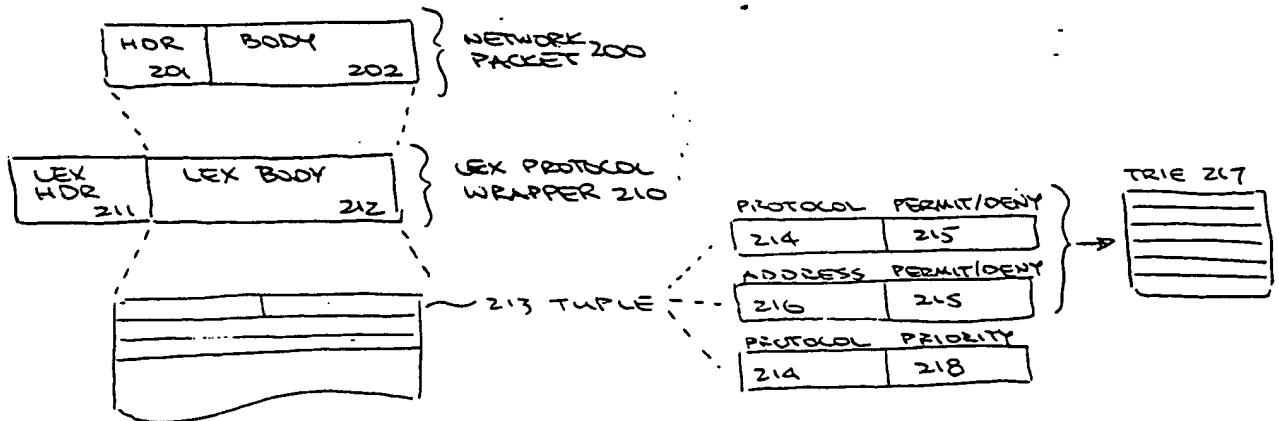 HDR BODY
201 202
NETWORK
PACKET 200
LEX LEX BODY
HDR
211 212
LEX PROTOCOL
WRAPPER 210
213 TUPLE
PROTOCOL PERMIT/DENY
214 215
ADDRESS PERMIT/DENY
216 215
PROTOCOL PRIORITY
214 218
TRIE 217